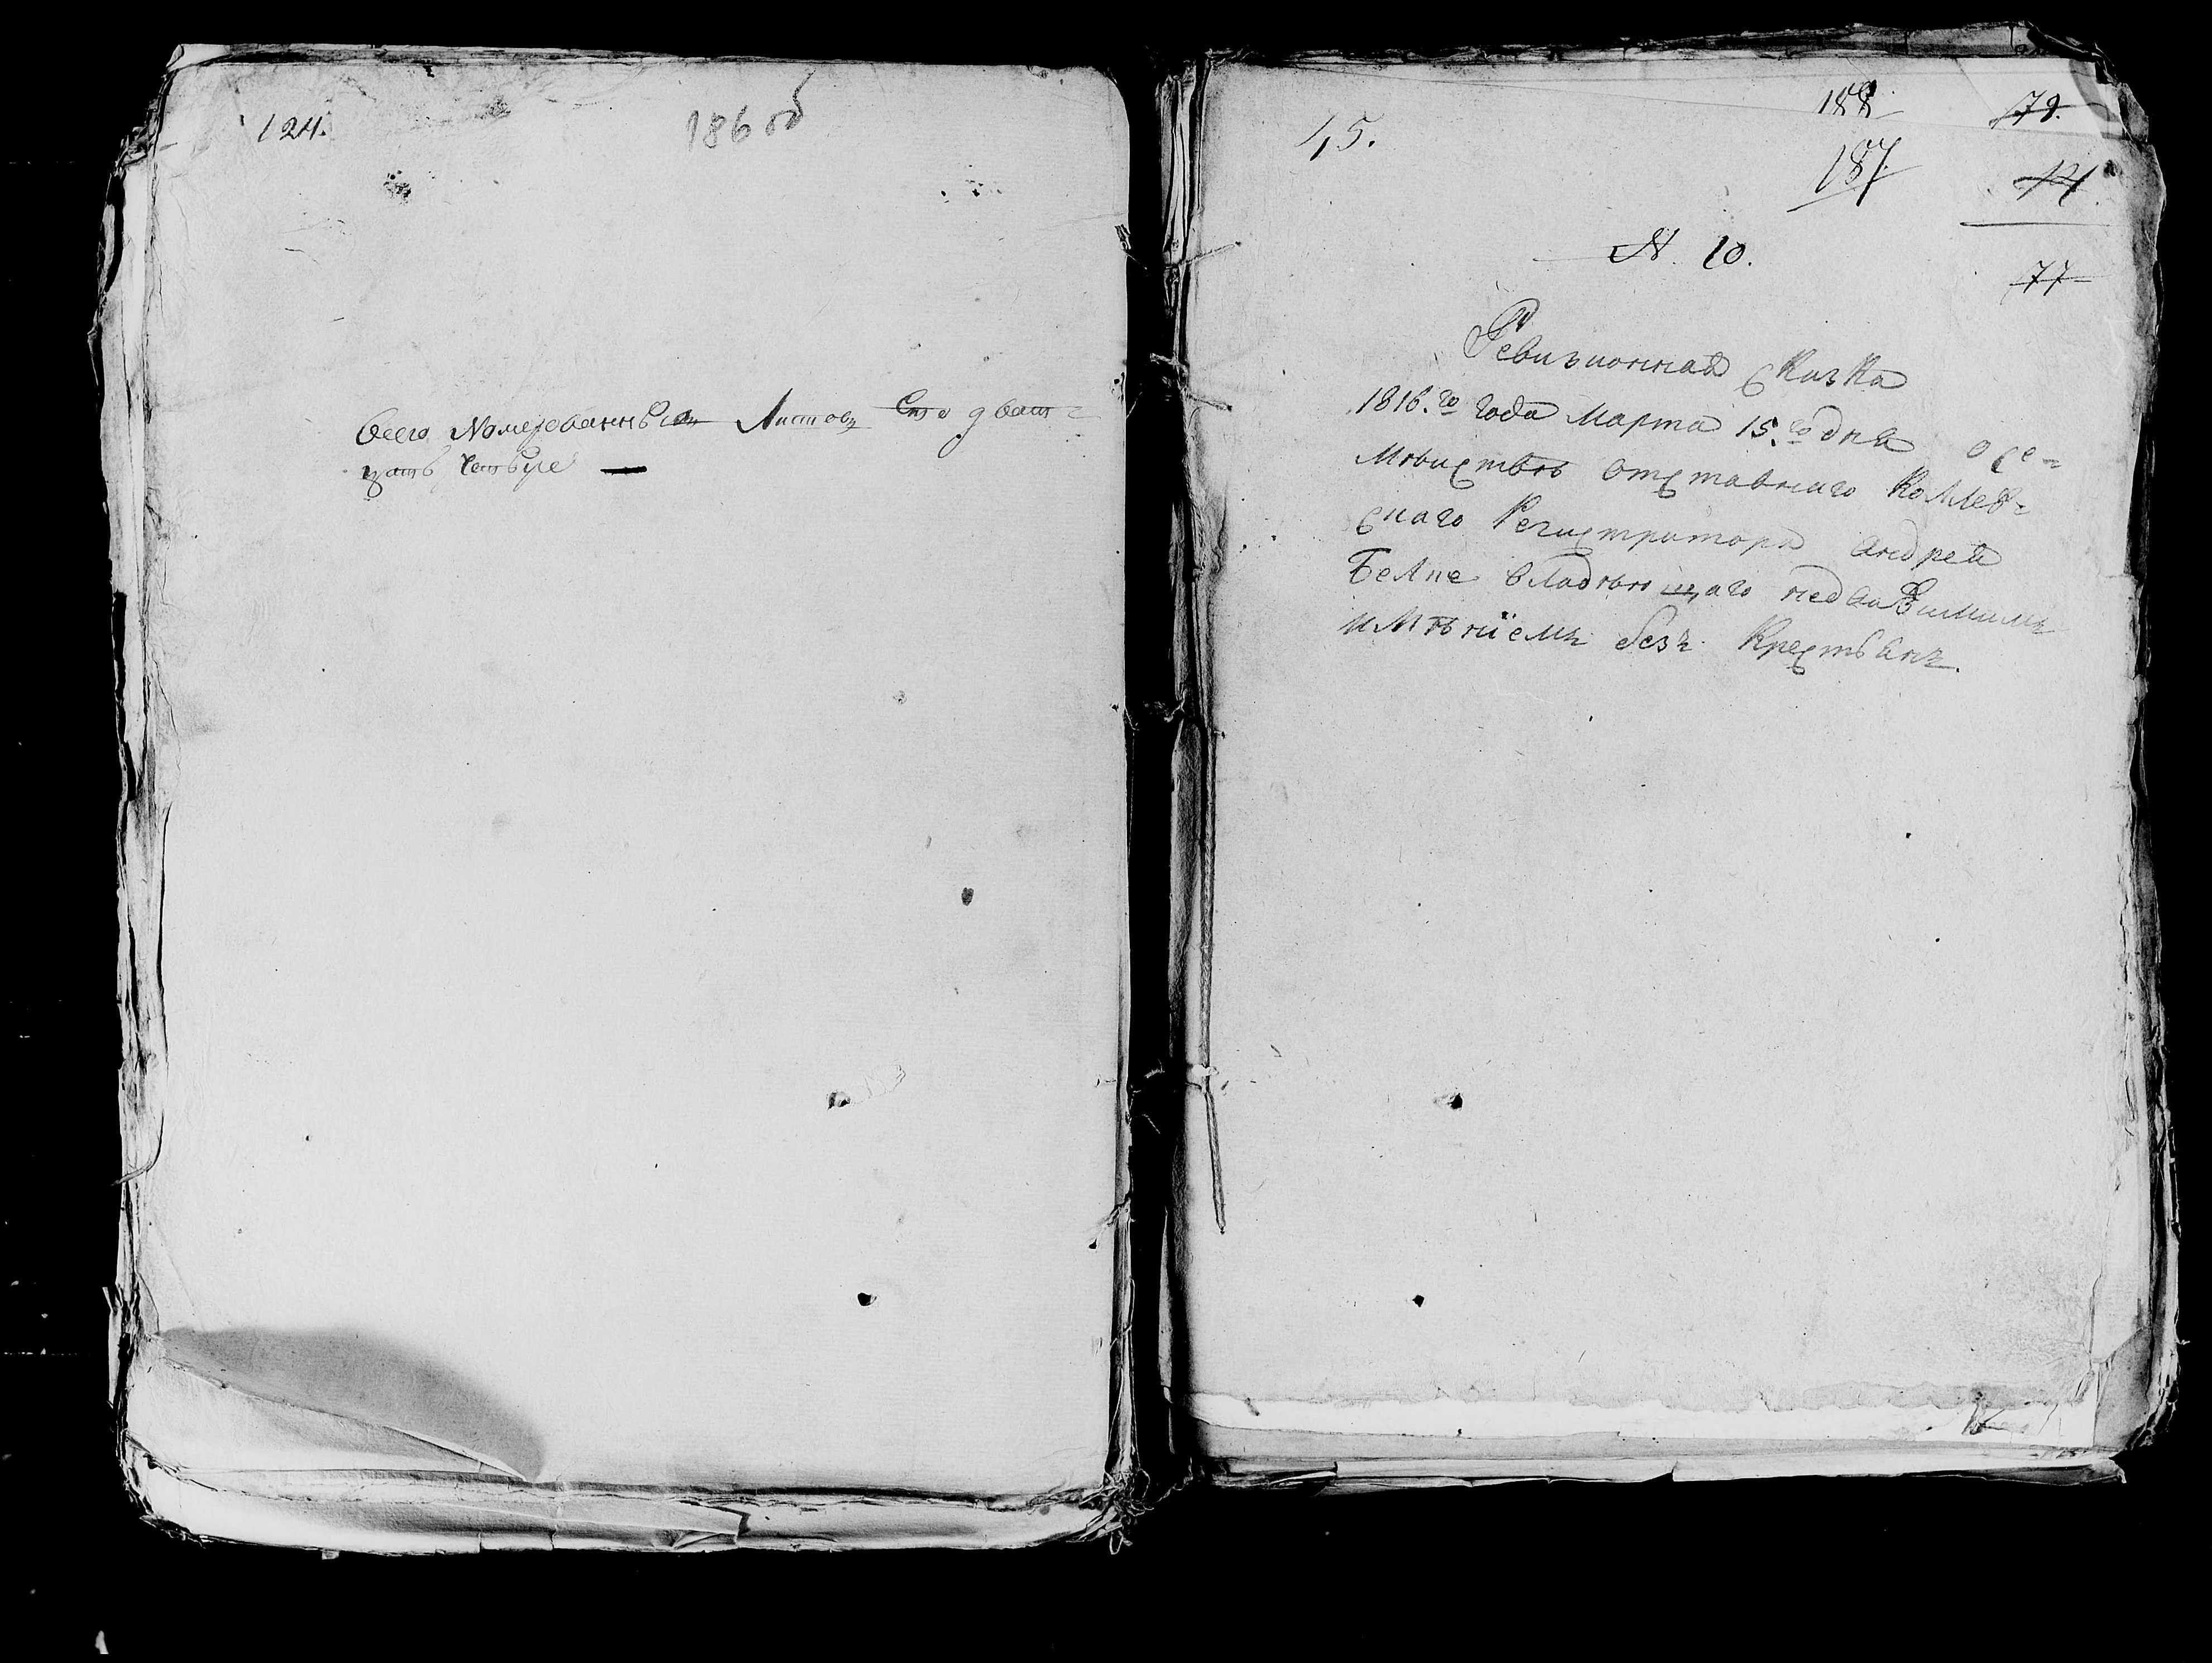 124.
186 об
Всего Номерованныхъ Листовъ Сто дват=
цать Четыре —
45.
188
79.
187.
14.
N. 10.
77
Ревизионная Сказка
1816.го года Марта 15.го дня о се=
Мѣйствѣ отставнаго Коллеж=
скаго Регистратора Андрея
Белые владѣющаго недвижимымъ
имѣнїемъ безъ Крестьянъ.